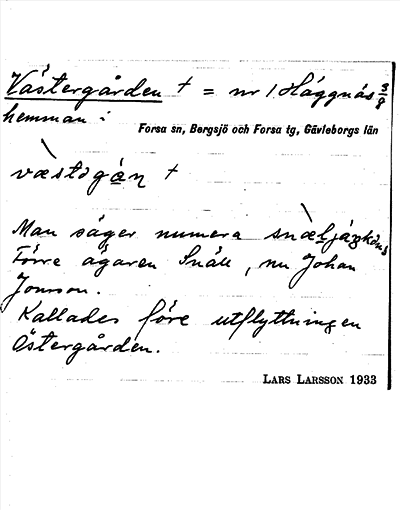 Västergården † = nr 1 Häggnäs 3/8
hemman:
Forsa sn, Bergsjö och Forsa tg, Gävleborgs län
væstəgạ́ṇ †
Man säger numera
Förre ägaren Snäll, nu Johan
Jonsson.
Kallades före utflyttningen
Östergården.
LARS LARSSON 1933